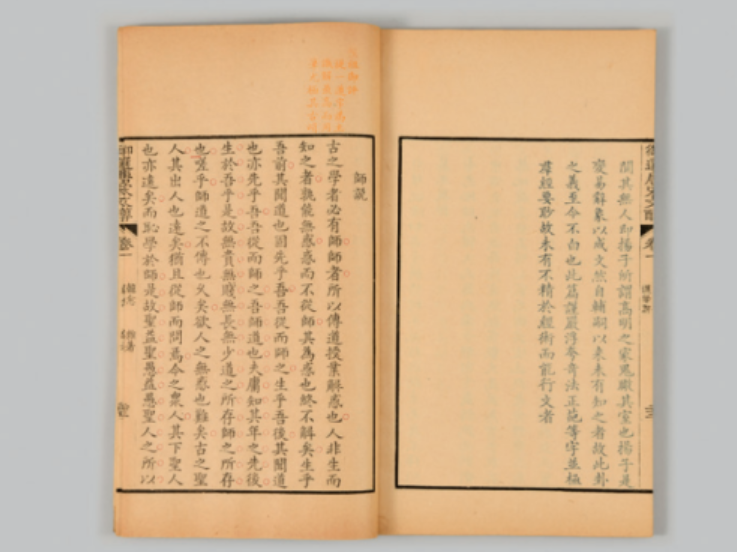 聞其無人卽揚子所謂高明之家鬼瞰其室也揚子是
變易解象以成文然自輔嗣以來未有知之者故此卦
之義至今不白也此篇謹嚴浮夸奇法正葩等字並極
羣經要眇故未有不精於經術而能行文者
師說
古之學者必有師師者所以傳道授業解惑也人非生而
知之者孰能無惑惑而不從師其爲惑也終不解矣生乎
吾前其聞道也固先乎吾吾從而師之生乎吾後其聞道
也亦先乎吾吾從而師之吾師道也夫庸知其年之先後
生於吾乎是故無貴無賤無長無少道之所存師之所存
也嗟乎師道之不傳也久矣欲人之無惑也難矣古之聖
人其出人也遠矣猶且從師而問焉今之衆人其下聖人
也亦遠矣而恥學於師是故聖益聖愚益愚聖人之所以
卷一